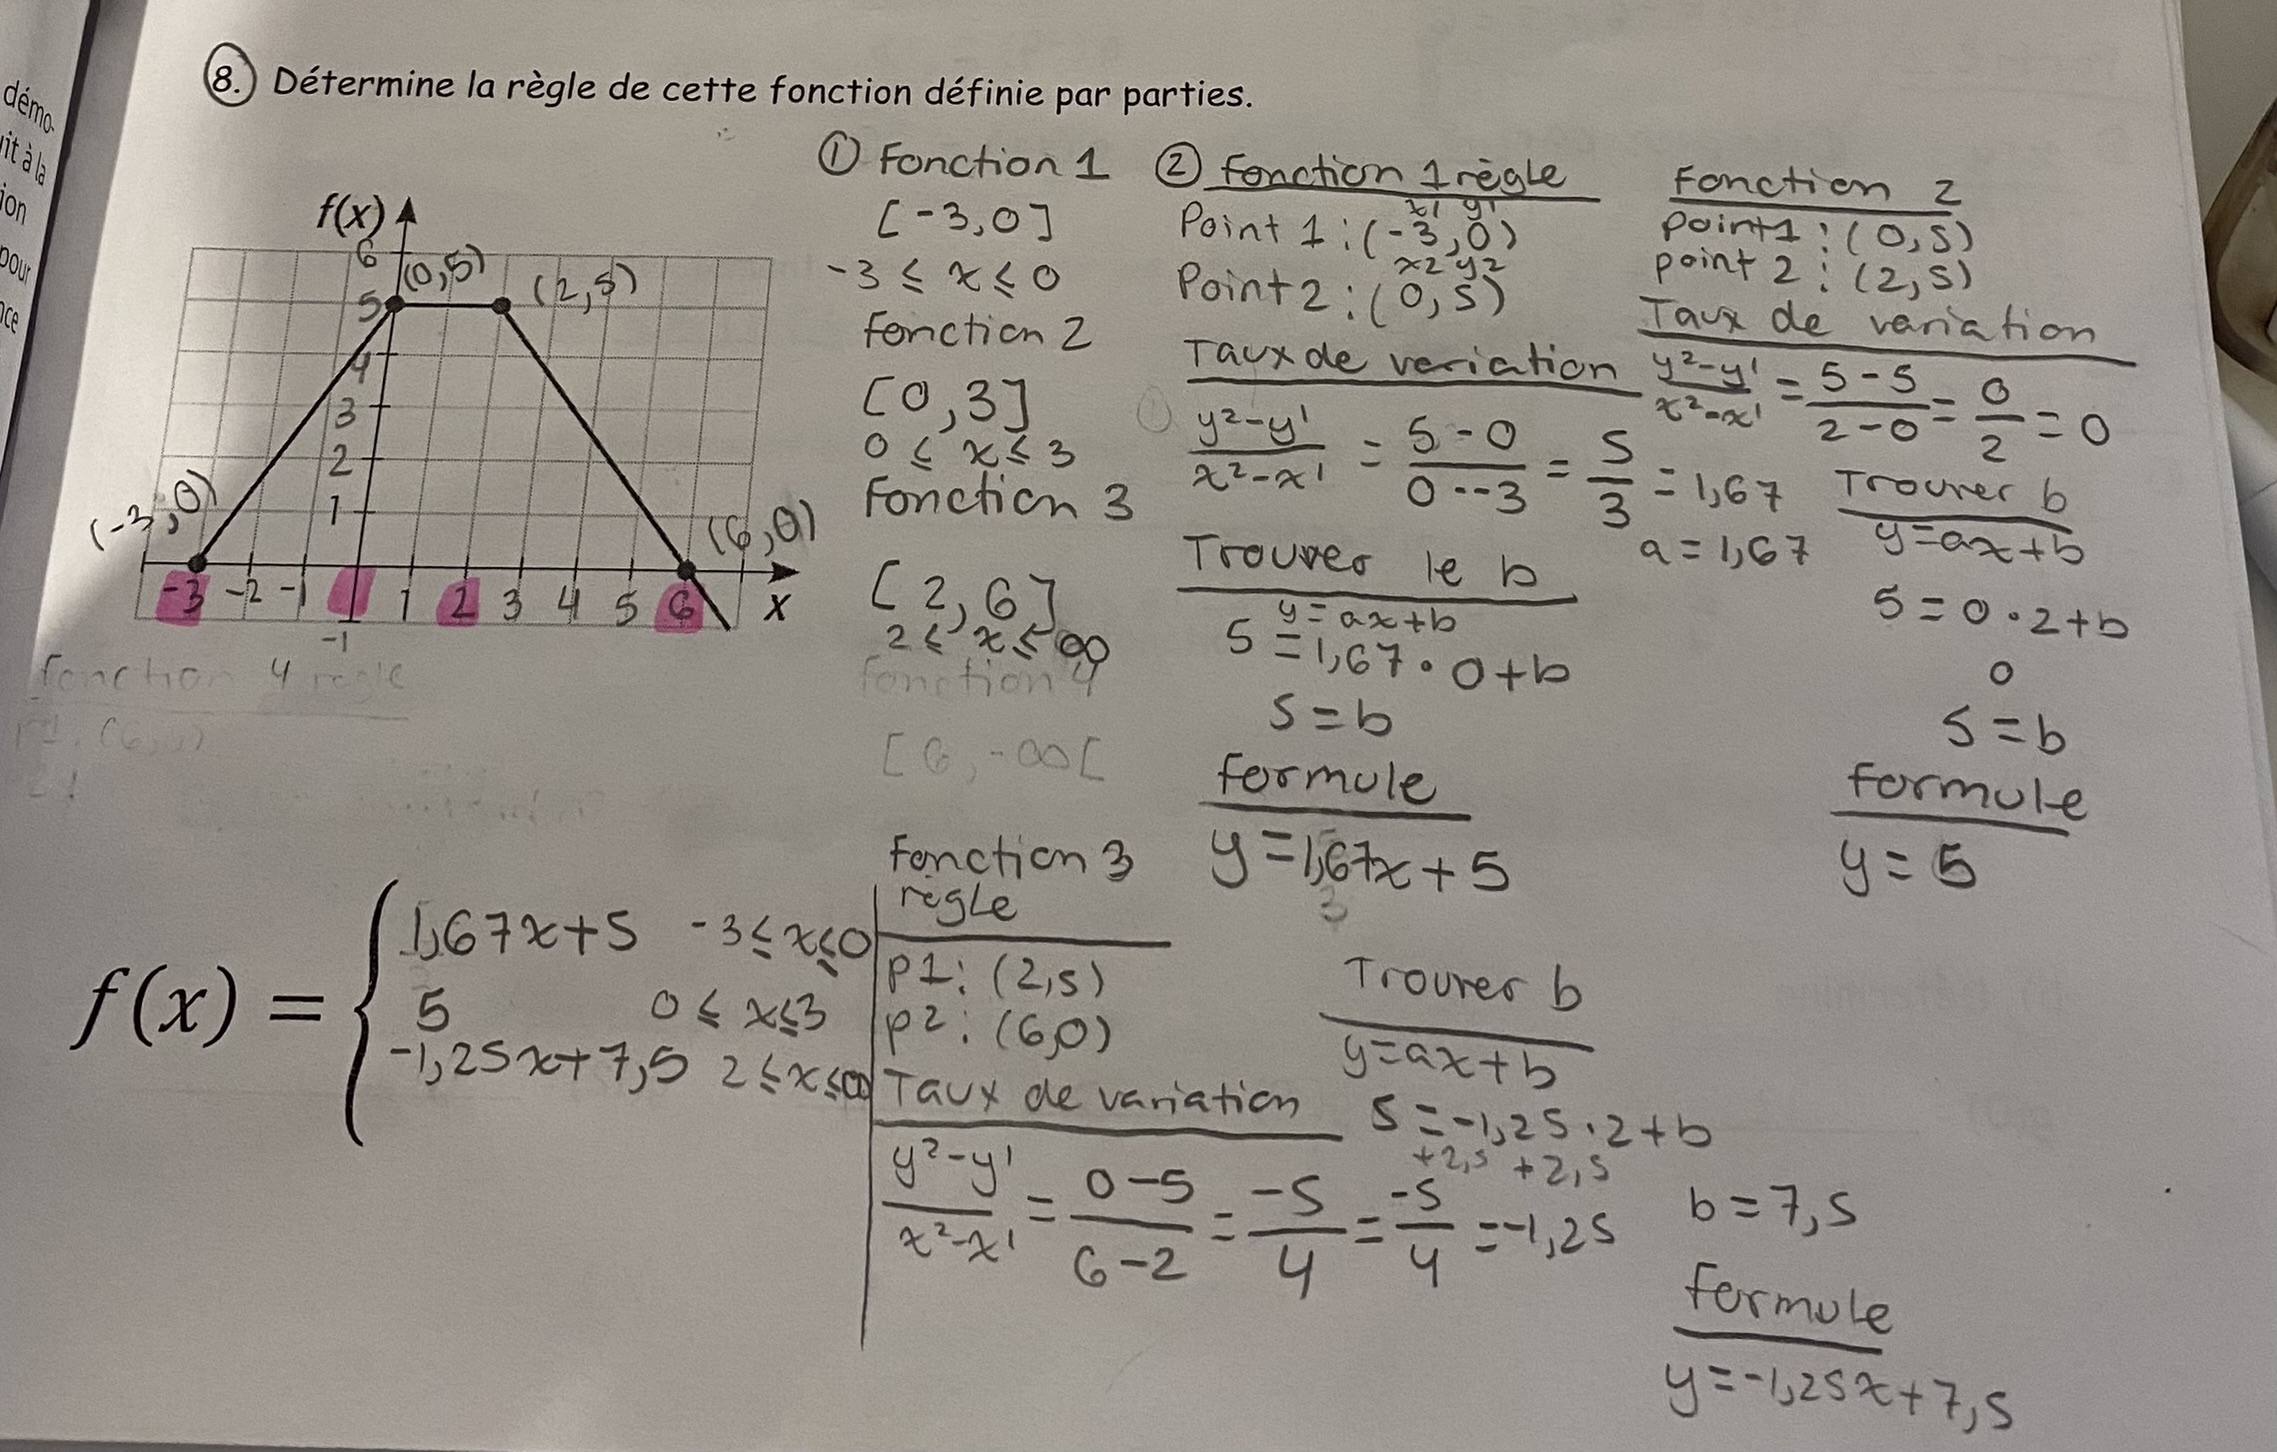 démo-
it à la
ion
pour
nce
8. Détermine la règle de cette fonction définie par parties.
f(x)
6
(0,5)
(2,5)
5
4
3
2
1
(-3,0)
(6,0)
-3 -2 -1 1 2 3 4 5 6 x
-1
fonction 4 règle
① Fonction 1
[-3,0]
-3 ≤ x ≤ 0
Fonction 2
[0,3]
0 ≤ x ≤ 3
Fonction 3
[2,6]
2 ≤ x ≤ ∞
fonction 4
[6,-∞[
② Fonction 1 règle
x1 y1
Point 1 : (-3,0)
x2 y2
Point 2 : (0,5)
Taux de variation
y2-y1/x2-x1 = 5-0/0--3 = 5/3 = 1,67
a = 1,67
Trouver le b
y=ax+b
5 = 1,67 • 0+b
5 = b
Formule
y = 1,67x + 5
3
Fonction 2
Point 1 : (0,5)
point 2 : (2,5)
Taux de variation
y2-y1/x2-x1 = 5-5/2-0 = 0/2 = 0
Trouver b
y=ax+b
5 = 0 • 2+b
0
5 = b
Formule
y = 5
f(x) =
1,67x+5 -3 ≤ x ≤ 0
5 0 ≤ x ≤ 3
-1,25x+7,5 2 ≤ x ≤ ∞
Fonction 3
règle
P1: (2,5)
P2: (6,0)
Taux de variation
y2-y1/x2-x1 = 0-5/6-2 = -5/4 = -5/4 = -1,25
Trouver b
y=ax+b
5 = -1,25 • 2+b
+2,5 +2,5
b = 7,5
Formule
y = -1,25x + 7,5